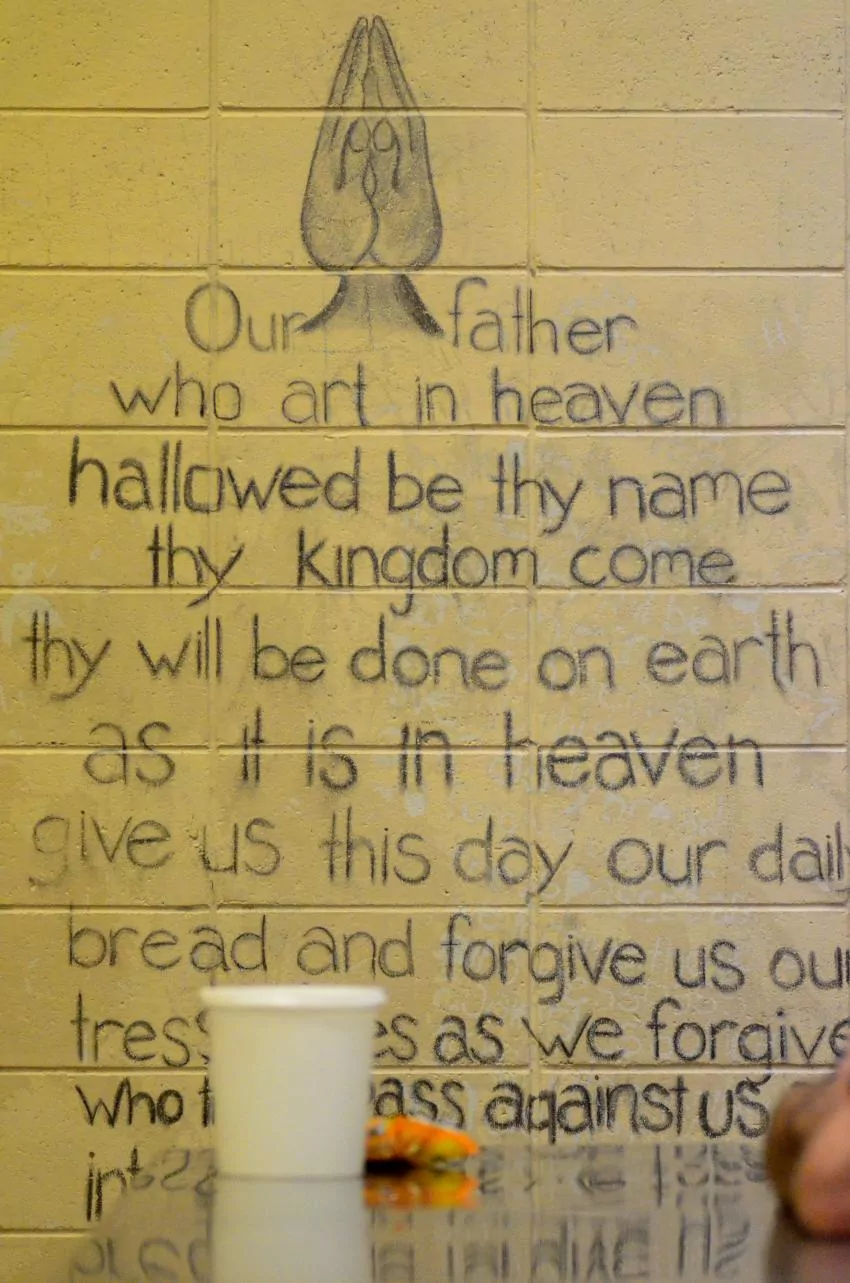 Our father
who art in heaven
hallowed be thy name
thy kingdom come
thy will be done on earth
as it is in heaven
give us this day our daily
bread and forgive us our
as we forgive
who against us